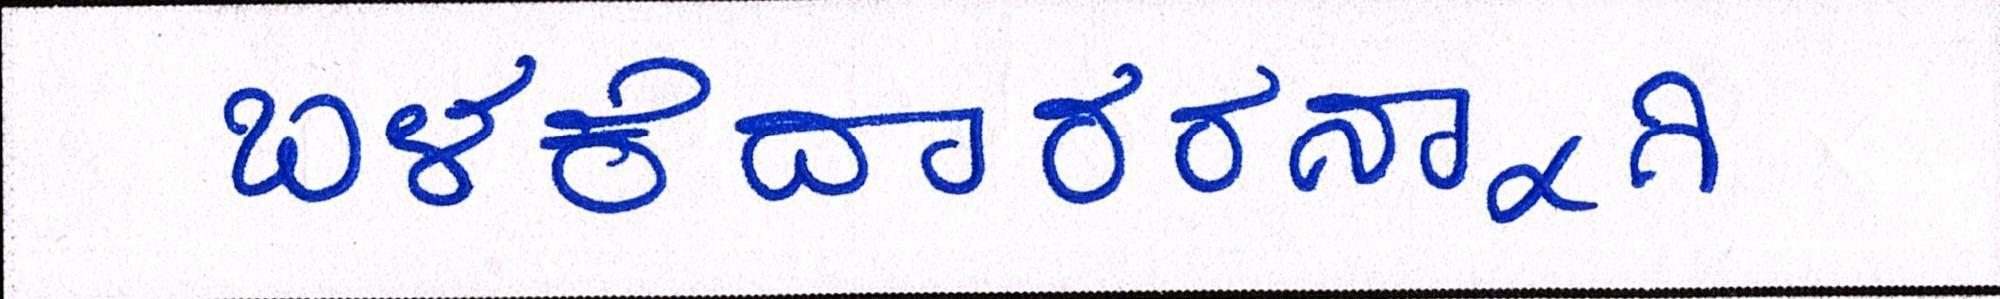 ಬಳಕೆದಾರರನ್ನಾಗಿ